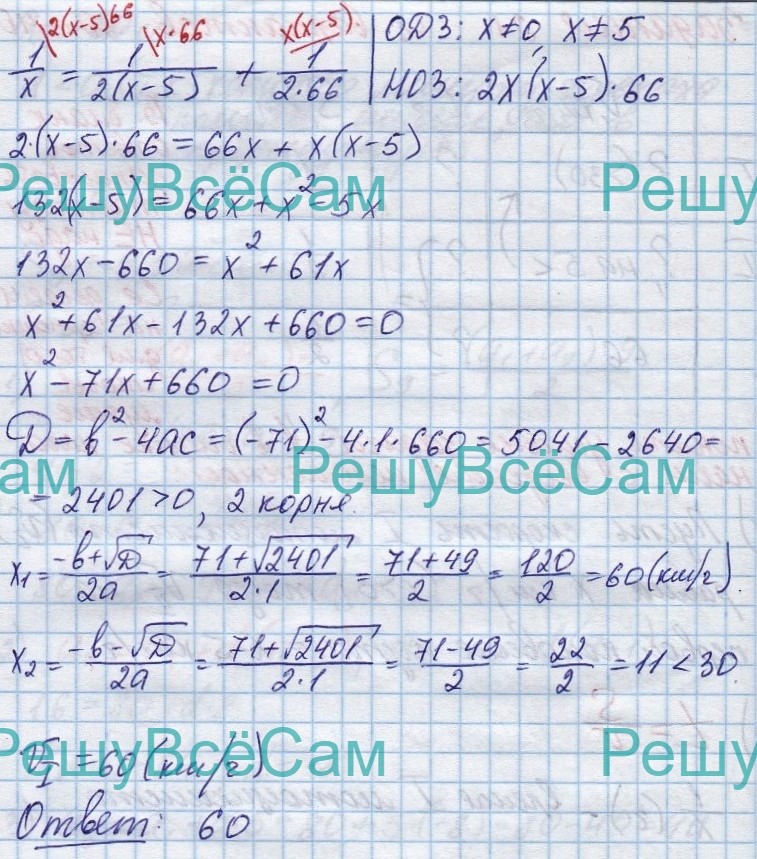 2(x-5)66 x·66 x(x-5)
1/x = 1/2(x-5) + 1/2·66
ОДЗ: x≠0, x≠5
НОЗ: 2x(x-5)·66
2·(x-5)·66 = 66x + x(x-5)
РешуВсёСам Решу
132(x-5) = 66x + x² - 5x
132x - 660 = x² + 61x
x² + 61x - 132x + 660 = 0
x² - 71x + 660 = 0
D = b² - 4ac = (-71)² - 4·1·660 = 5041 - 2640 =
ам РешуВсёСам
= 2401 > 0, 2 корня.
x₁ = -b+√D/2a = 71+√2401/2·1 = 71+49/2 = 120/2 = 60 (км/ч).
x₂ = -b-√D/2a = 71+√2401/2·1 = 71-49/2 = 22/2 = 11 < 30.
РешуВсёСам Решу
V_I = 60 (км/ч)
Ответ: 60